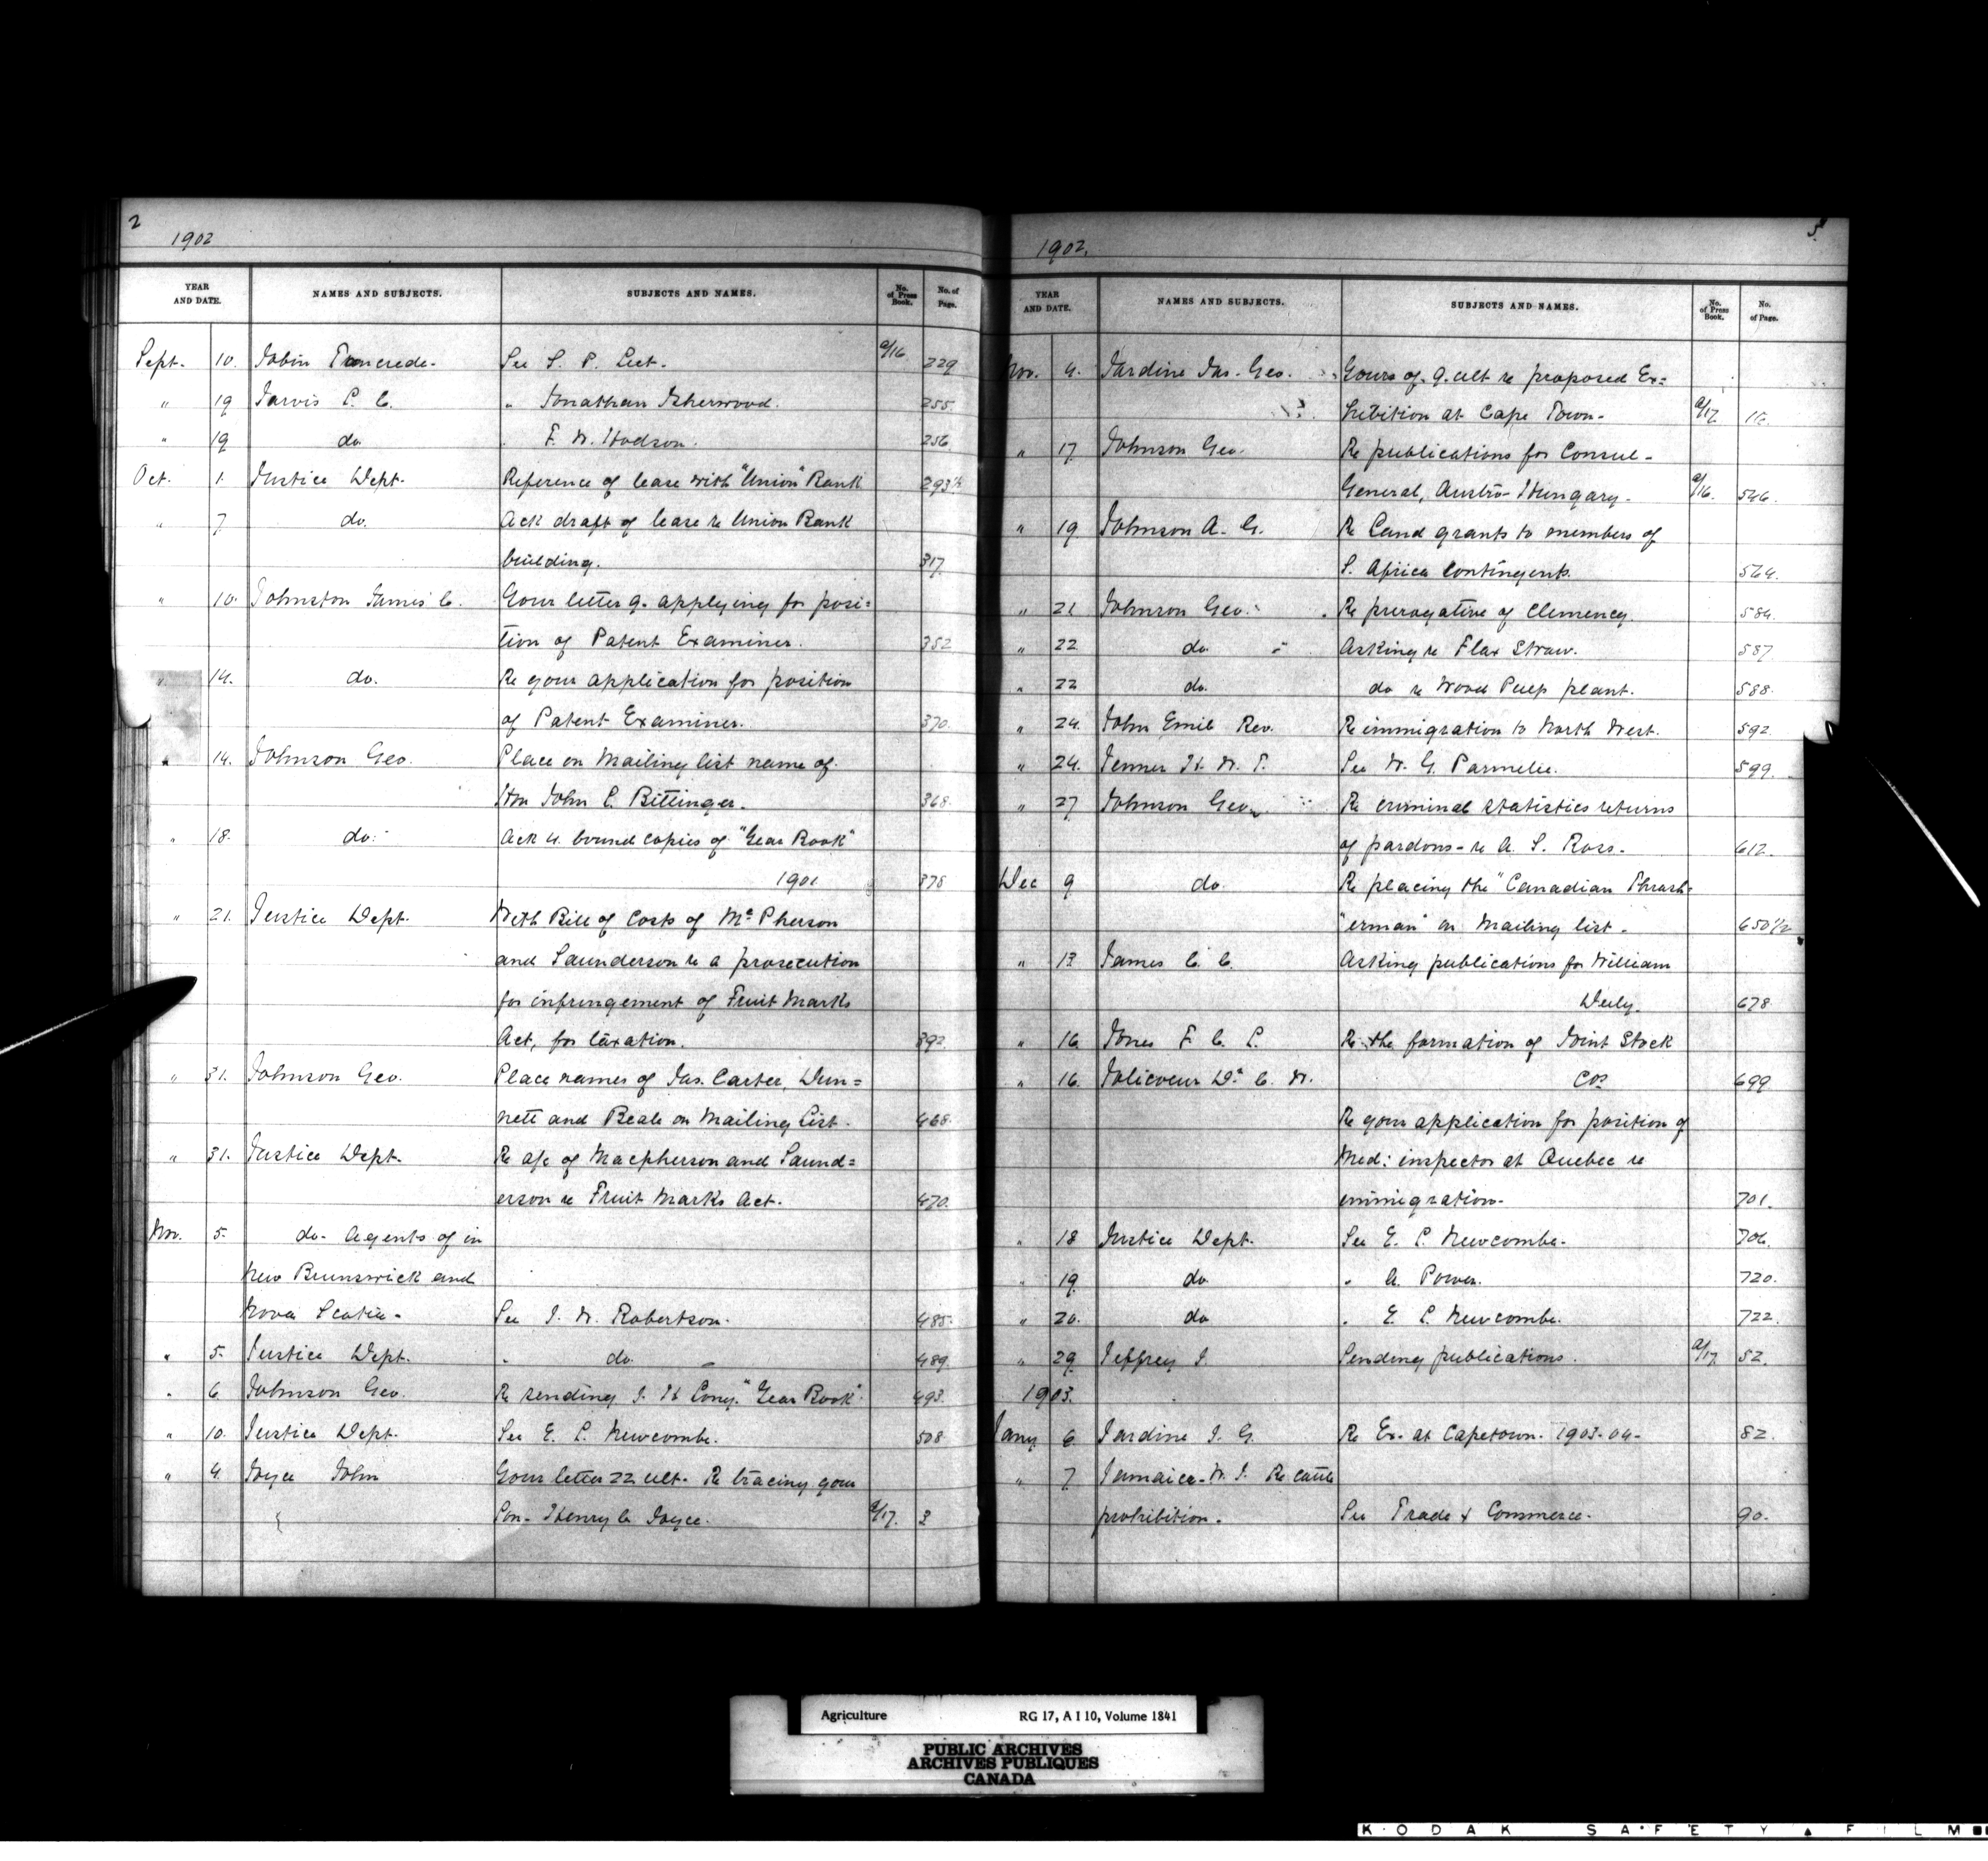 2
1902
YEAR AND DATE. NAMES AND SUBJECTS. SUBJECTS AND NAMES. No. of Press Book. No. of Page.
Sept. 10. Jobin Tancrede. See S. P. Leet. a/16 229
" 19 Jarvis P. C. " Jonathan Isherwood. 255.
" 19 do " F. W. Hodson. 256
Oct. 1. Justice Dept. Reference of lease with "Union" Bank 293½
" 7 do. Ack draft of lease re Union Bank
building. 317
" 10. Johnston James C. Your letter 9. applying for posi=
tion of Patent Examiner. 352
" 14. do. Re your application for position
of Patent Examiner. 370.
" 14. Johnson Geo. Place on Mailing list name of
Hon John C. Bittinger. 368.
" 18. do. Ack 4 bound copies of "Year Book"
1901 378
" 21. Justice Dept. With Bill of Costs of Mc Pherson
and Saunderson re a prosecution
for infringement of Fruit Marks
Act, for taxation. 392
" 31. Johnson Geo. Place names of Jas. Carter, Dun=
nett and Beale on Mailing List. 468.
" 31. Justice Dept. Re a/c of Macpherson and Saund=
erson re Fruit Marks Act. 470.
Nov. 5. do. Agents of in
New Brunswick and
Nova Scotia. See J. W. Robertson. 485.
" 5. Justice Dept. " do. 489.
" 6. Johnson Geo. Re sending J. H. Cony. "Year Book" 493.
" 10. Justice Dept. See E. L. Newcombe. 508.
" 4. Joyce John Your letter 22 ult. Re tracing your
Son. Henry C Joyce. a/17. 3
3.
1902.
YEAR AND DATE. NAMES AND SUBJECTS. SUBJECTS AND NAMES. No. of Press Book. No. of Page.
Nov. 4. Jardine Jas. Geo. Yours of 9. ult re proposed Ex=
hibition at Cape Town. a/17 16.
" 17 Johnson Geo. Re publications for Consul-
General, Austro-Hungary. a/16. 546.
" 19 Johnson A. G. Re Land grants to members of
S. Africa Contingents. 564.
" 21 Johnson Geo. Re prerogative of Clemency. 584.
" 22 do. Asking re Flax Straw. 587
" 22 do. do re Wood Pulp plant. 588.
" 24. John Emil Rev. Re immigration to North West. 592
" 24. Jenner H. W. T. See W. G. Parmelee. 599.
" 27 Johnson Geo. Re criminal statistics returns
of pardons - re A. S. Ross. 612.
Dec 9 do. Re placing the "Canadian Thrash-
"erman" on Mailing list. 650½
" 13 James C. C. Asking publications for William
678
" 16 Jones F. C. L. Re the formation of Joint Stock
" 16. Jolicoeur Dr C. W. Cos 699
Re your application for position of
Med: inspector at Quebec re
immigration. 701.
" 18 Justice Dept. See E. L. Newcombe. 706.
" 19 do " A. Power. 720.
" 20. do " E. L. Newcombe. 722.
" 29. Jeffrey J. Sending publications. a/17 52.
1903.
Jany 6 Jardine J. G. Re Ex. at Capetown. 1903-04- 82.
" 7 Jamaica. W. I. Re cattle
prohibition. See Trade & Commerce. 90.
Agriculture RG 17, A I 10, Volume 1841
PUBLIC ARCHIVES
ARCHIVES PUBLIQUES
CANADA
KODAK SAFETY FILM